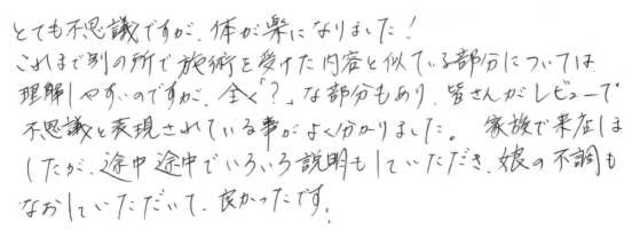 とても不思議ですが、体が楽になりました!
これまで別の所で施術を受けた内容と似ている部分については
理解しやすいのですが、全く「?」な部分もあり、皆さんがレビューで
不思議と表現されている事がよく分かりました。 家族で来店しま
したが、途中途中でいろいろ説明もしていただき、娘の不調も
なおしていただいて、良かったです。